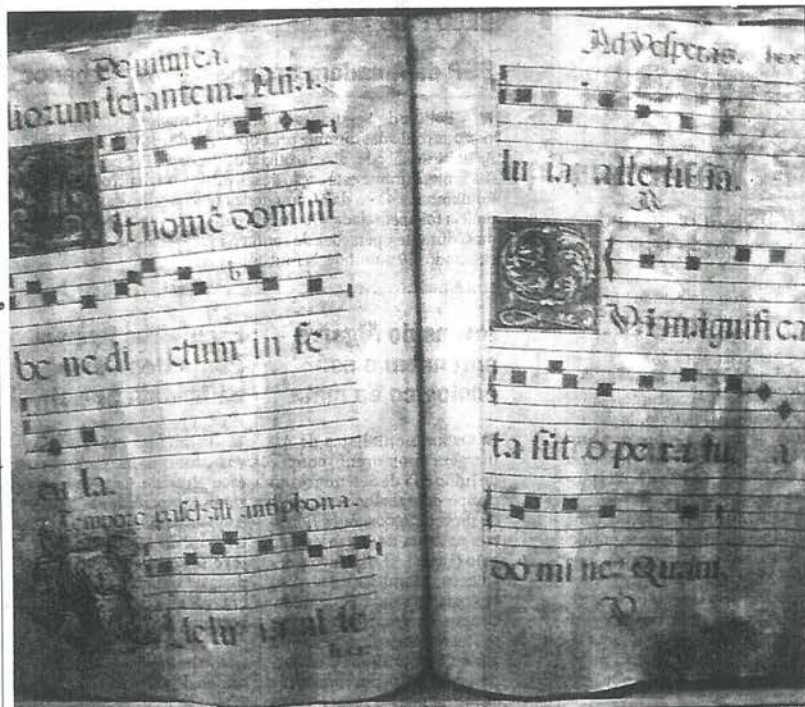 Dominica.
It nomē domini
be ne di ctum in se
cu la.
Tempore paschali antiphona.
lelu ia al le
Ad Vesperas.
lu ia, alle lu ia.
R
Q Vi magnifi ca
ta sūt o pe ra tu a
do mi ne: Quam.
V